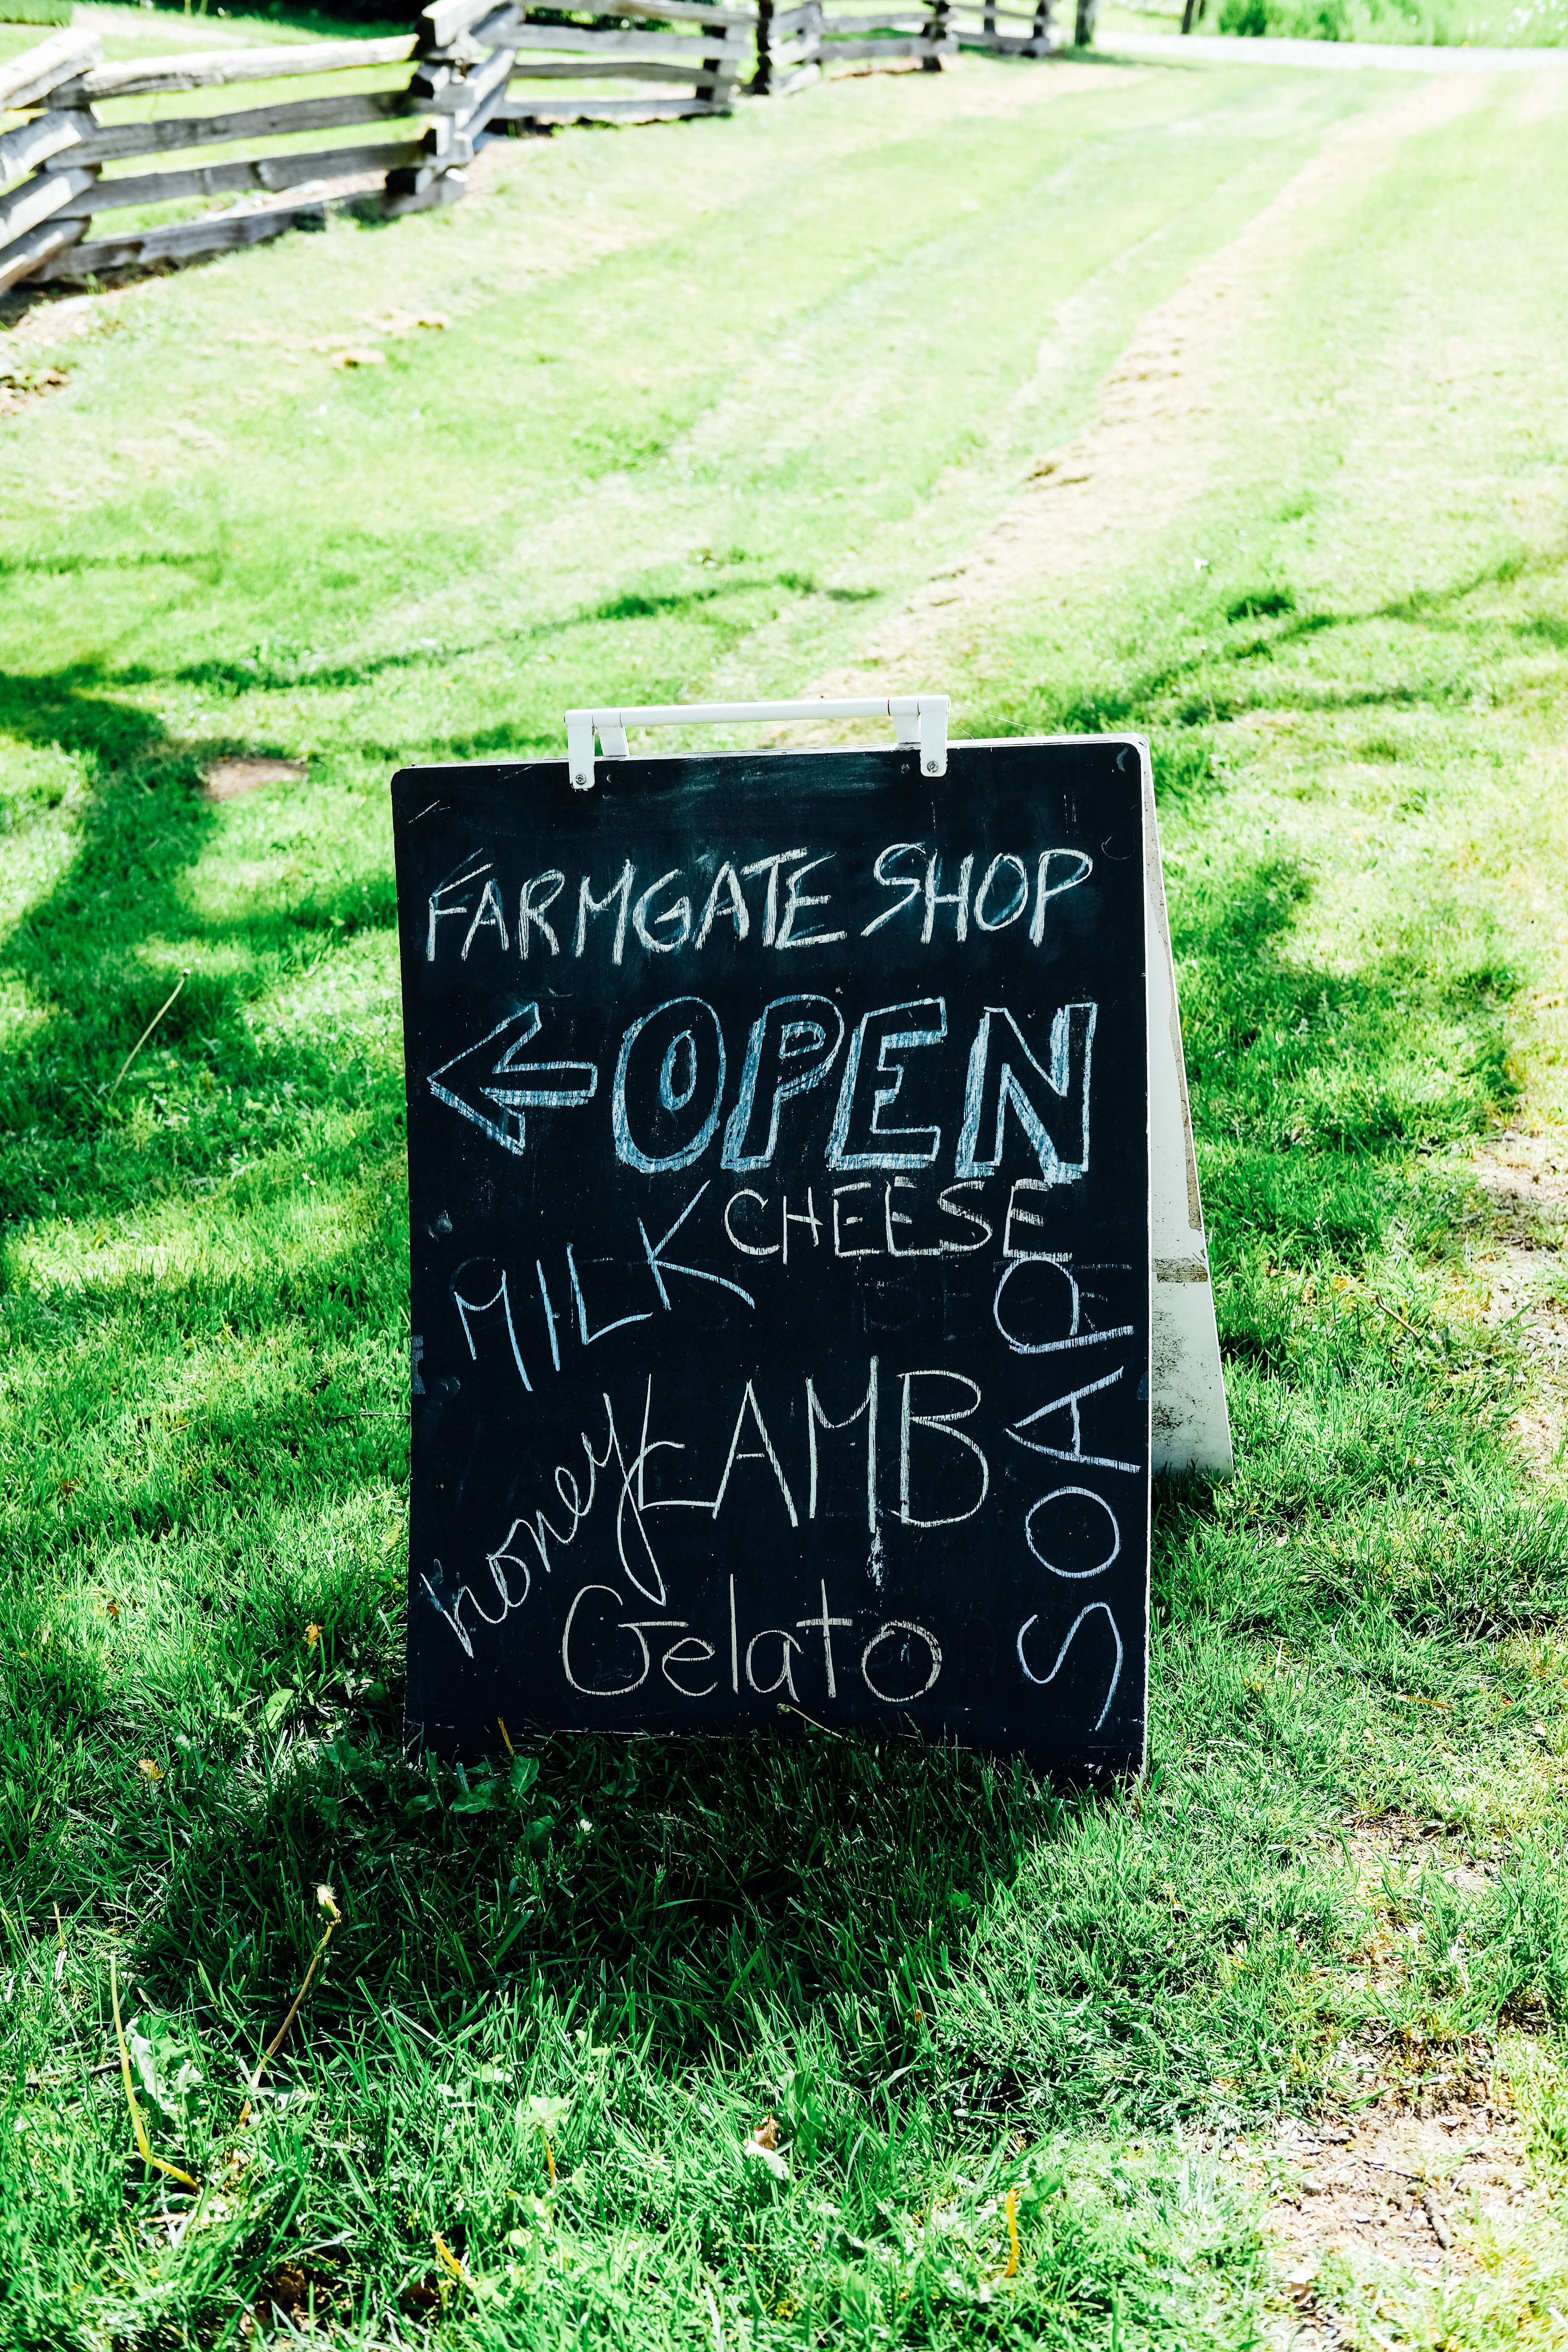 FARMGATE SHOP
← OPEN
CHEESE
MILK
SOAP
LAMB
honey
Gelato